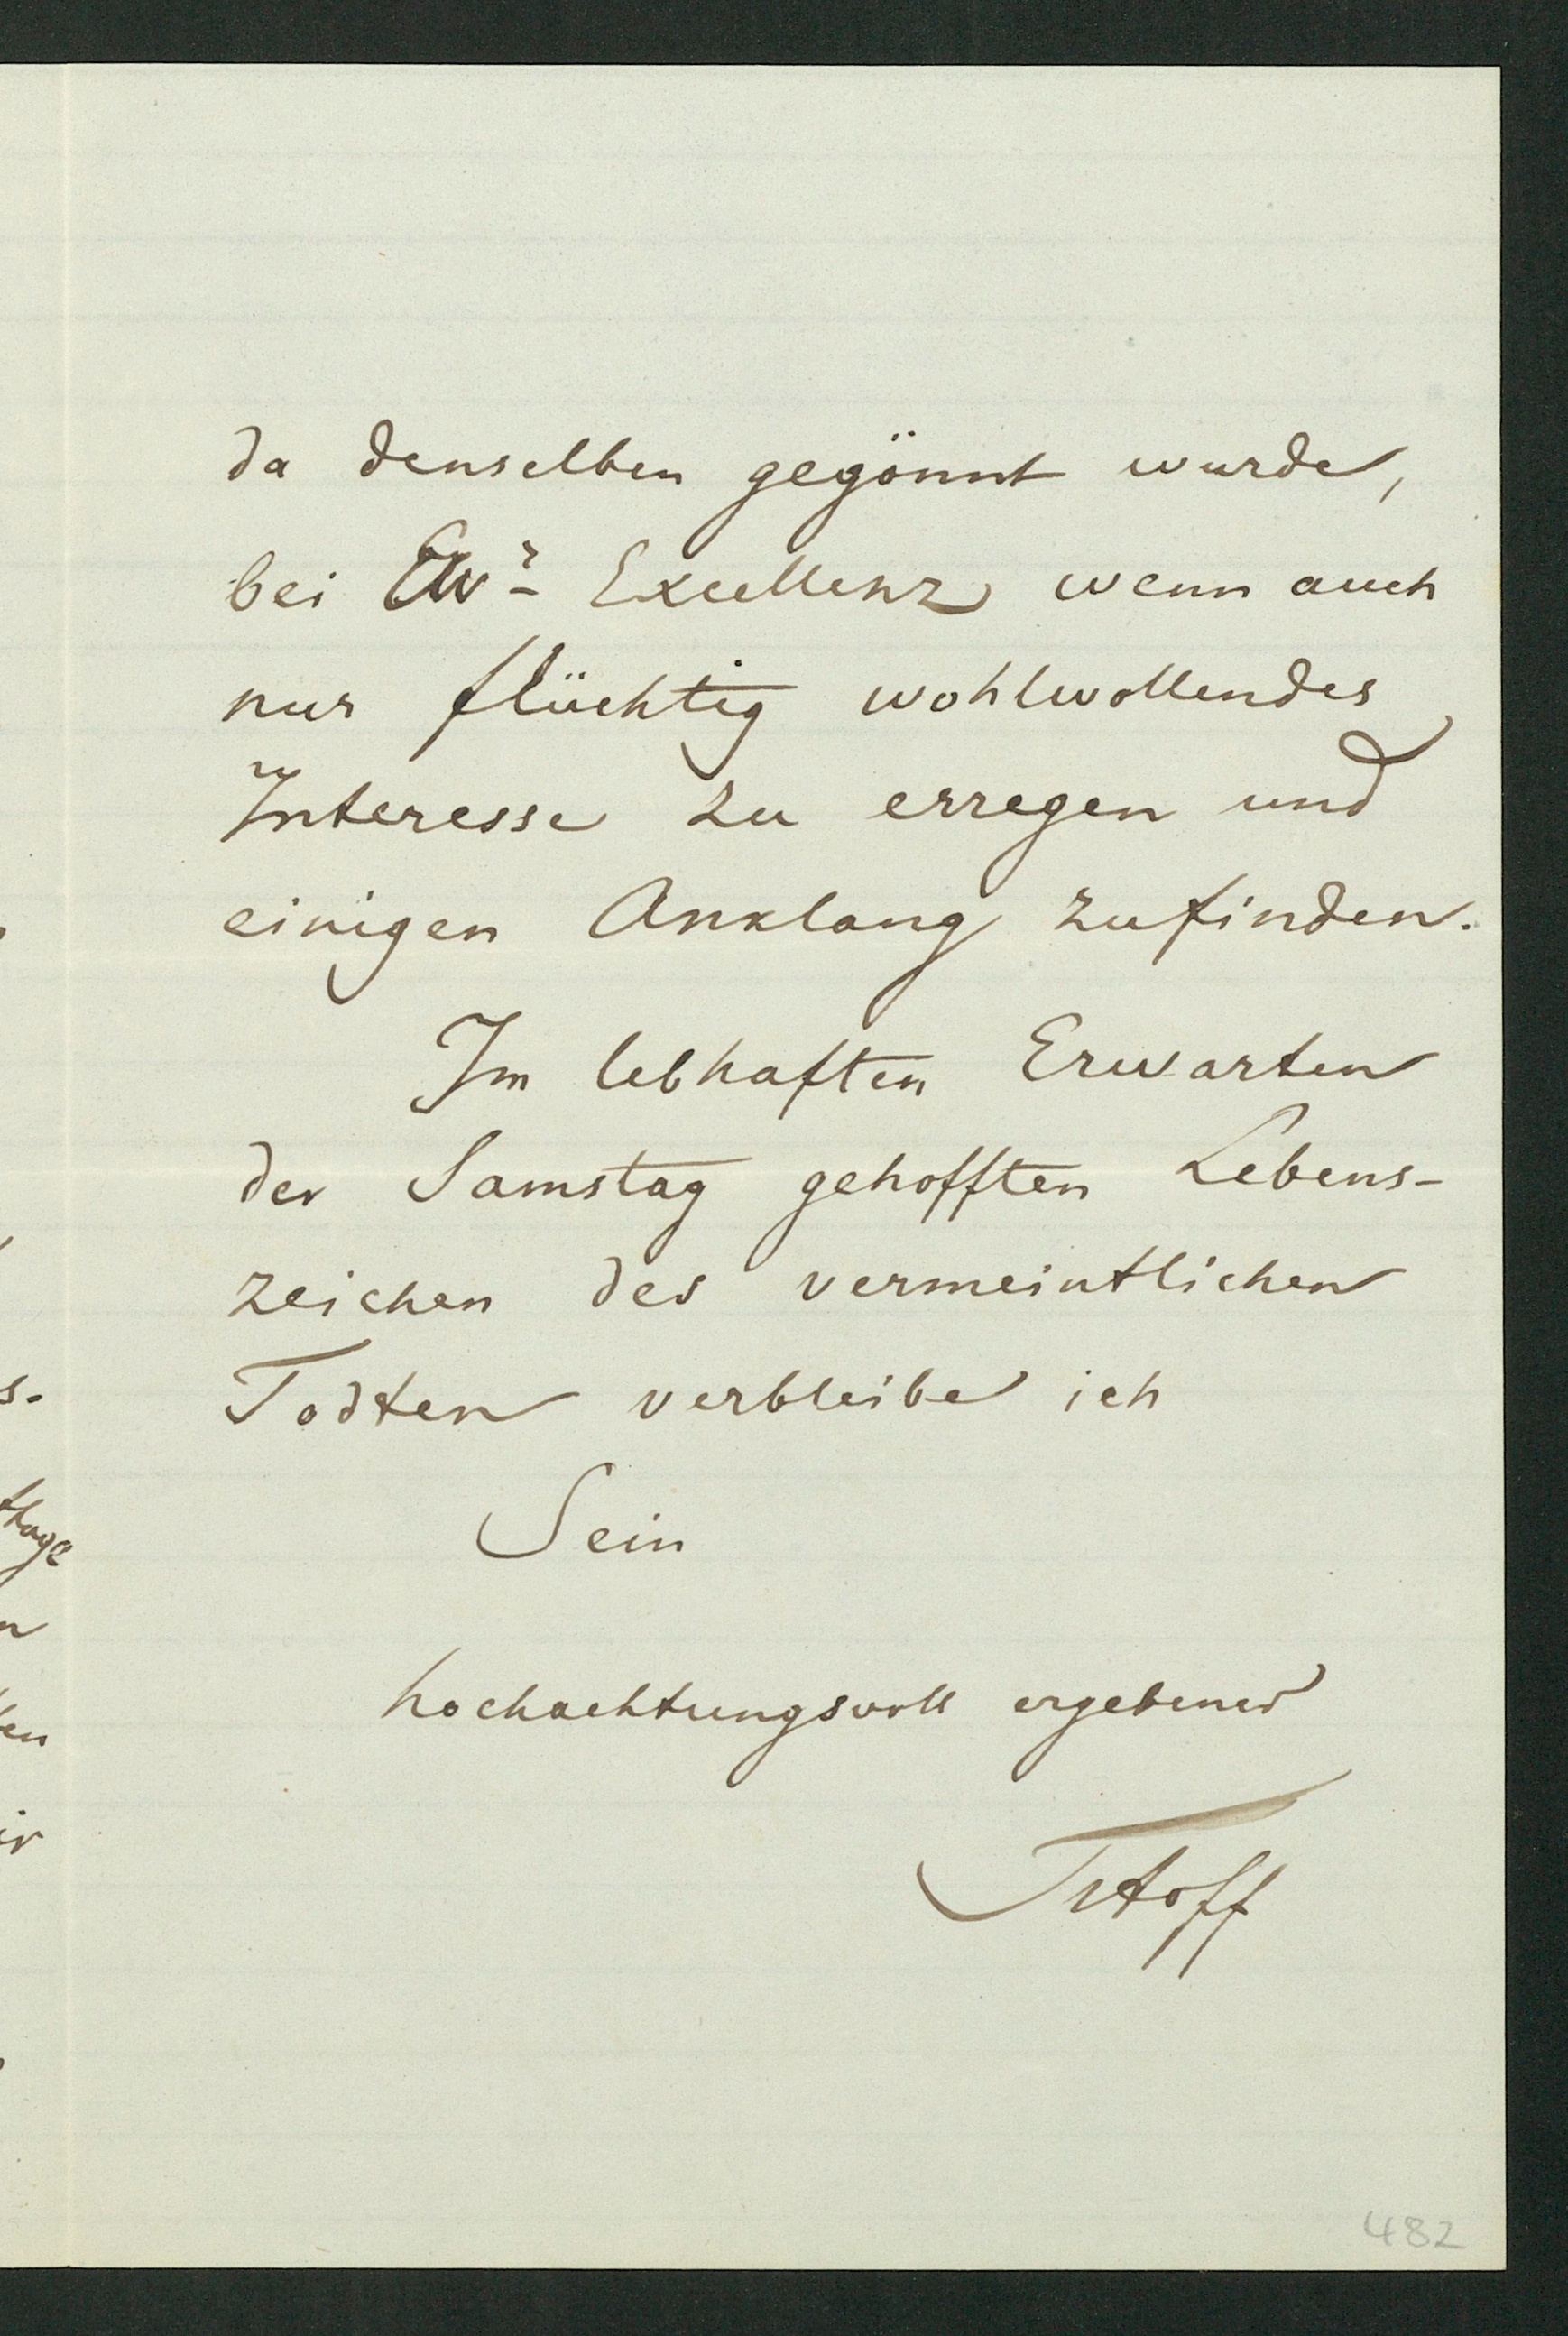 da denselben gegönnt wurde,
bei Ewr Excellenz wenn auch
nur flüchtig wohlwollendes
Interesse zu erregen und
einigen Anklang zufinden.
Im lebhaften Erwarten
der Samstag gehofften Lebens-
zeichen des vermeintlichen
Todten verbleibe ich
Sein
hochachtungsvoll ergebener
482